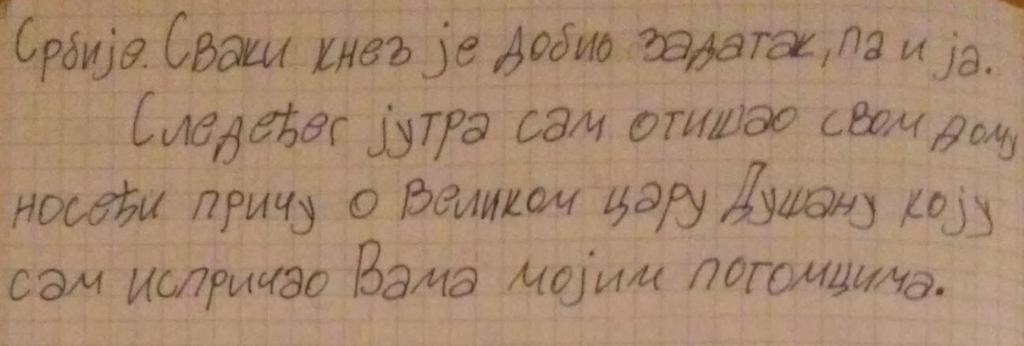 Србије. Сваки кнез је добио задатак, па и ја.
Следећег јутра сам отишао свом дому
носећи причу о Великом цару Душану коју
сам испричао Вама мојим потомцима.